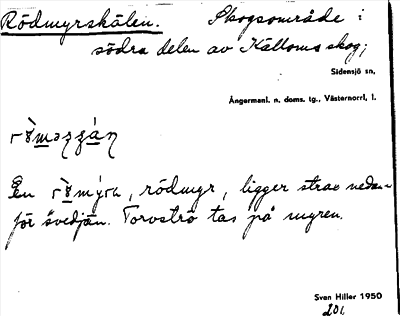 Rödmyrskälen. Skogsområde i
södra delen av Källoms skog;
Sidensjö sn,
Ångermanl. n. doms. tg., Västernorrl. l.
En , rödmyr, ligger strax nedan-
för svedjan. Torvströ tas på myren.
Sven Hiller 1950
201